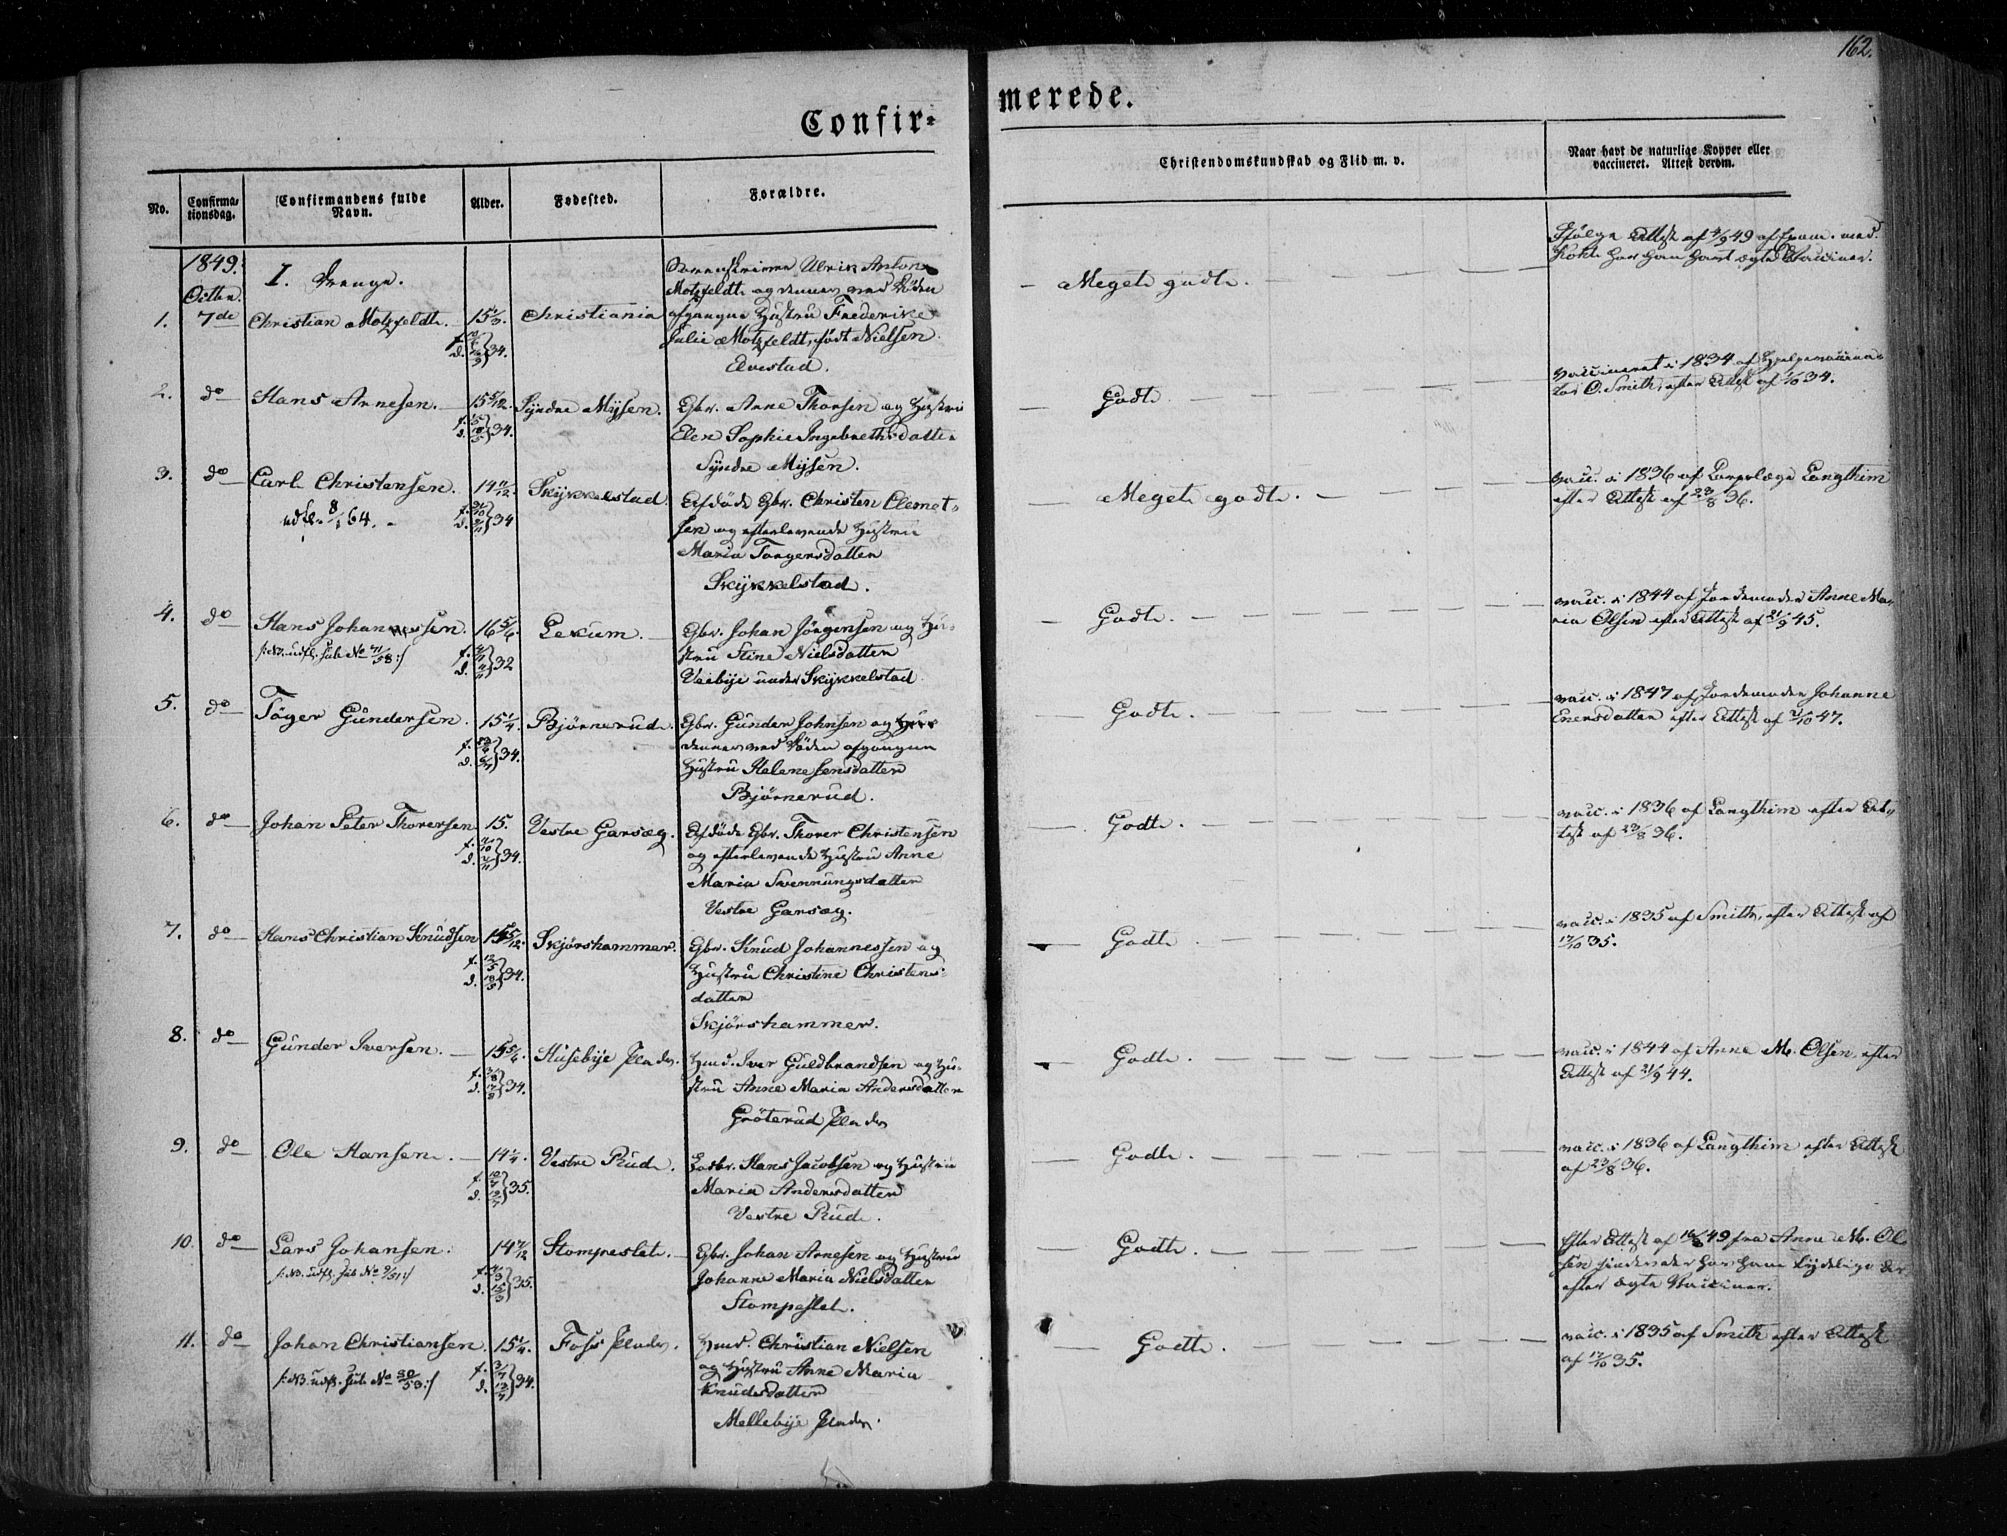 162.
Confir-
merede.
No.
Confirma-
tionsdag.
Confirmandens fulde
Navn.
Alder.
Fødested.
Forældre.
Christendomskundskab og Flid m. v.
Naar havt de naturlige Kopper eller
vaccineret. Attest derom.
1849.
Octbr.
I. Drenge.
1.
7de
Christian Motzfeldt.
15 1/3.
f.
d.
34.
Christiania
Sorenskriver Ulrik Anton
Motzfeldt og dennes ved Döden
afgangne Hustru Frederikke
Julie Motzfeldt, födt Nielsen.
Edvestad.
Meget godt.
Ifölge Attest af 4/9 49 af
har han havt ægte Vacciner.
2.
do
Hans Arnesen.
15 5/12.
f.
d.
34.
Syndre Mysen.
Gbr. Arne Thorsen og Hustru
Elen Sophie Ingebrethsdatter
Syndre Mysen.
Godt.
Vaccineret i 1834 af Hjelpevaccina-
tor O. Smith, efter Attest af 1/10 34.
3.
do
Carl Christensen.
udfl. 8/1 64.
14 11/12.
f.
d.
34
Skykkelstad
Afdöde Gbr. Christen Clemet-
sen og efterlevende Hustru
Maria Torgersdatter
Skykkelstad.
Meget godt.
vacc. i 1836 af Corpslæge Langthim
efter Attest af 23/8 36.
4.
do
Hans Johannessen.
/: NB. udfl. sub No 41/58 :/
16 5/6.
f.
d.
32
Lekum.
Gbr. Johan Jörgensen og Hu-
stru Stine Nielsdatter
Veibye under Skykkelstad
Godt.
vacc. i 1844 af Jordemoder Anne Ma-
ria Olsen efter Attest af 21/9 45.
5.
do
Töger Gundersen.
15 1/4.
f.
d.
34.
Bjørnerud.
Gbr. Gunder Johnsen og
dennes ved Döden afgangne
Hustru Helene Jensdatter
Bjørnerud.
Godt.
vacc. i 1847 af Jordemoder Johanne
Enersdatter efter Attest af 2/10 47.
6.
do
Johan Peter Thorersen
15.
f.
d.
34.
Vestre Garsæg.
Afdöde Gbr. Thorer Christensen
og efterlevende Hustru Anne
Maria Svennungsdatter
Vestre Garsæg.
Godt.
vacc. i 1836 af Langthim efter At-
test af 23/8 36.
7.
do
Hans Christian Knudsen
15 5/12.
f.
d.
34.
Skjørshammer.
Gbr. Knud Johannessen og
Hustru Christine Christens-
datter
Skjørshammer.
Godt.
vacc. i 1835 af Smith, efter Attest af
17/10 35.
8.
do
Gunder Iversen.
15 5/6.
f.
d.
34.
Husebye Plads.
Husm. Iver Guldbrandsen og Hu-
stru Anne Maria Andersdatter
Gröterud Plads
Godt.
vacc. i 1844 af Anne M. Olsen, efter
Attest af 21/9 44.
9.
do
Ole Hansen.
14 1/4.
f.
d.
35.
Vestre Rud.
Gbr. Hans Jacobsen og Hustru
Maria Andersdatter
Vestre Rud.
Godt.
vacc. i 1836 af Langthim efter Attest
af 23/8 36.
10.
do
Lars Johansen.
/: NB. udfl. sub No 9/51 :/
14 7/12
f.
d.
35.
Stompeslet.
Gbr. Johan Arnesen og Hustru
Johanne Maria Nielsdatter
Stompeslet.
Godt.
Efter Attest af 49 fra Anne M. Ol-
sen har han tydelige Ar
efter ægte Vacciner.
11.
do
Johan Christiansen.
/: NB. udfl. sub No 30/53 :/
15 1/4.
f.
d.
34.
Foss Plads.
Husm. Christian Nielsen
og Hustru Anne Maria
Knudsdatter
Mellebye Plads.
Godt.
vacc. i 1835 af Smith efter Attest
af 17/10 35.